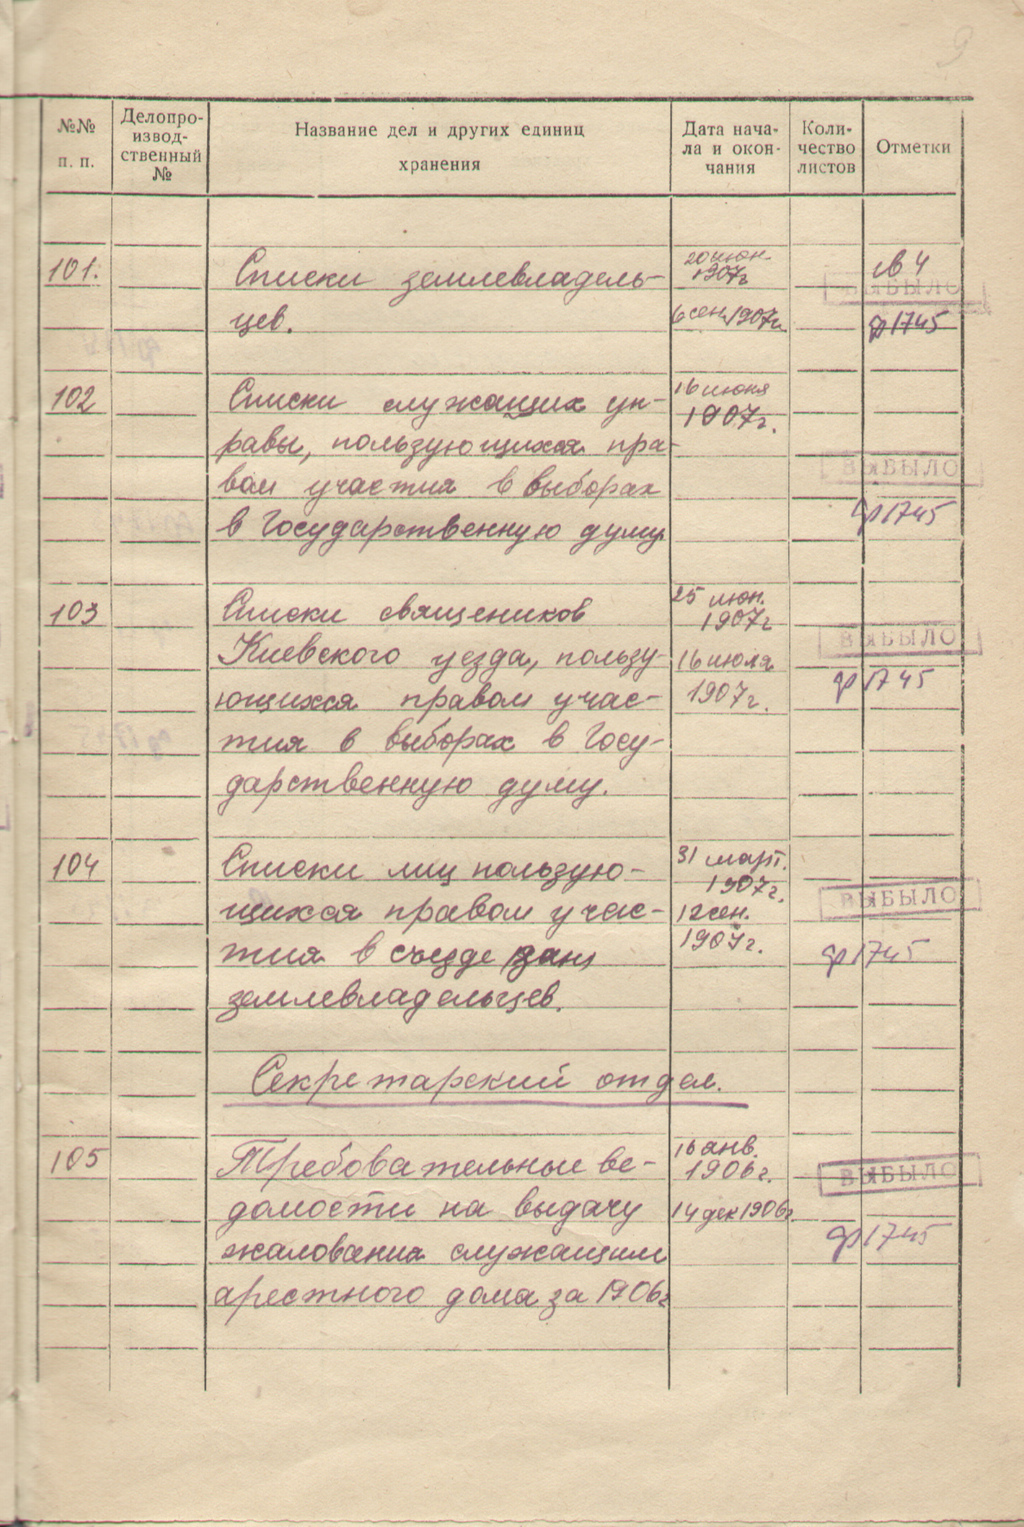 9
№№ п. п.
Делопро-
извод-
ственный
№
Название дел и других единиц
хранения
Дата нача-
ла и окон-
чания
Коли-
чество
листов
Отметки
101.
Списки землевладель-
цев.
20 июн.
1907г
6 сен. 1907г.
св 4
ВЫБЫЛО
ф 1745
102
Списки служащих уп-
равы, пользующихся пра-
вом участия в выборах
в Государственную думу
16 июня
1907г.
ВЫБЫЛО
ф 1745
103
Списки священиков
Киевского уезда, пользу-
ющихся правом учас-
тия в выборах в Госу-
дарственную думу.
25 июн.
1907г
16 июля
1907г.
ВЫБЫЛО
ф 1745
104
Списки лиц пользую-
щихся правом учас-
тия в съезде
землевладельцев.
31 март.
1907г.
12 сен.
1907г.
ВЫБЫЛО
ф 1745
Секретарский отдел.
105
Требовательные ве-
домости на выдачу
жалования служащим
арестного дома за 1906г
16 янв.
1906г.
14 дек 1906г.
ВЫБЫЛО
ф 1745